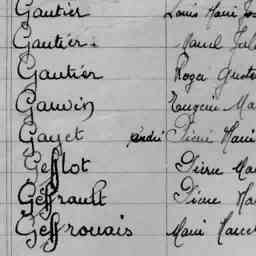 Gautier Louis Marie Jos
Gautier Marcel Jule
Gautier Roger Gust
Gauvin Eugène Ma
Gayet André Pierre Marie
Gefflot Pierre Mar
Geffrault Pierre Ma
Geffrouais Marie